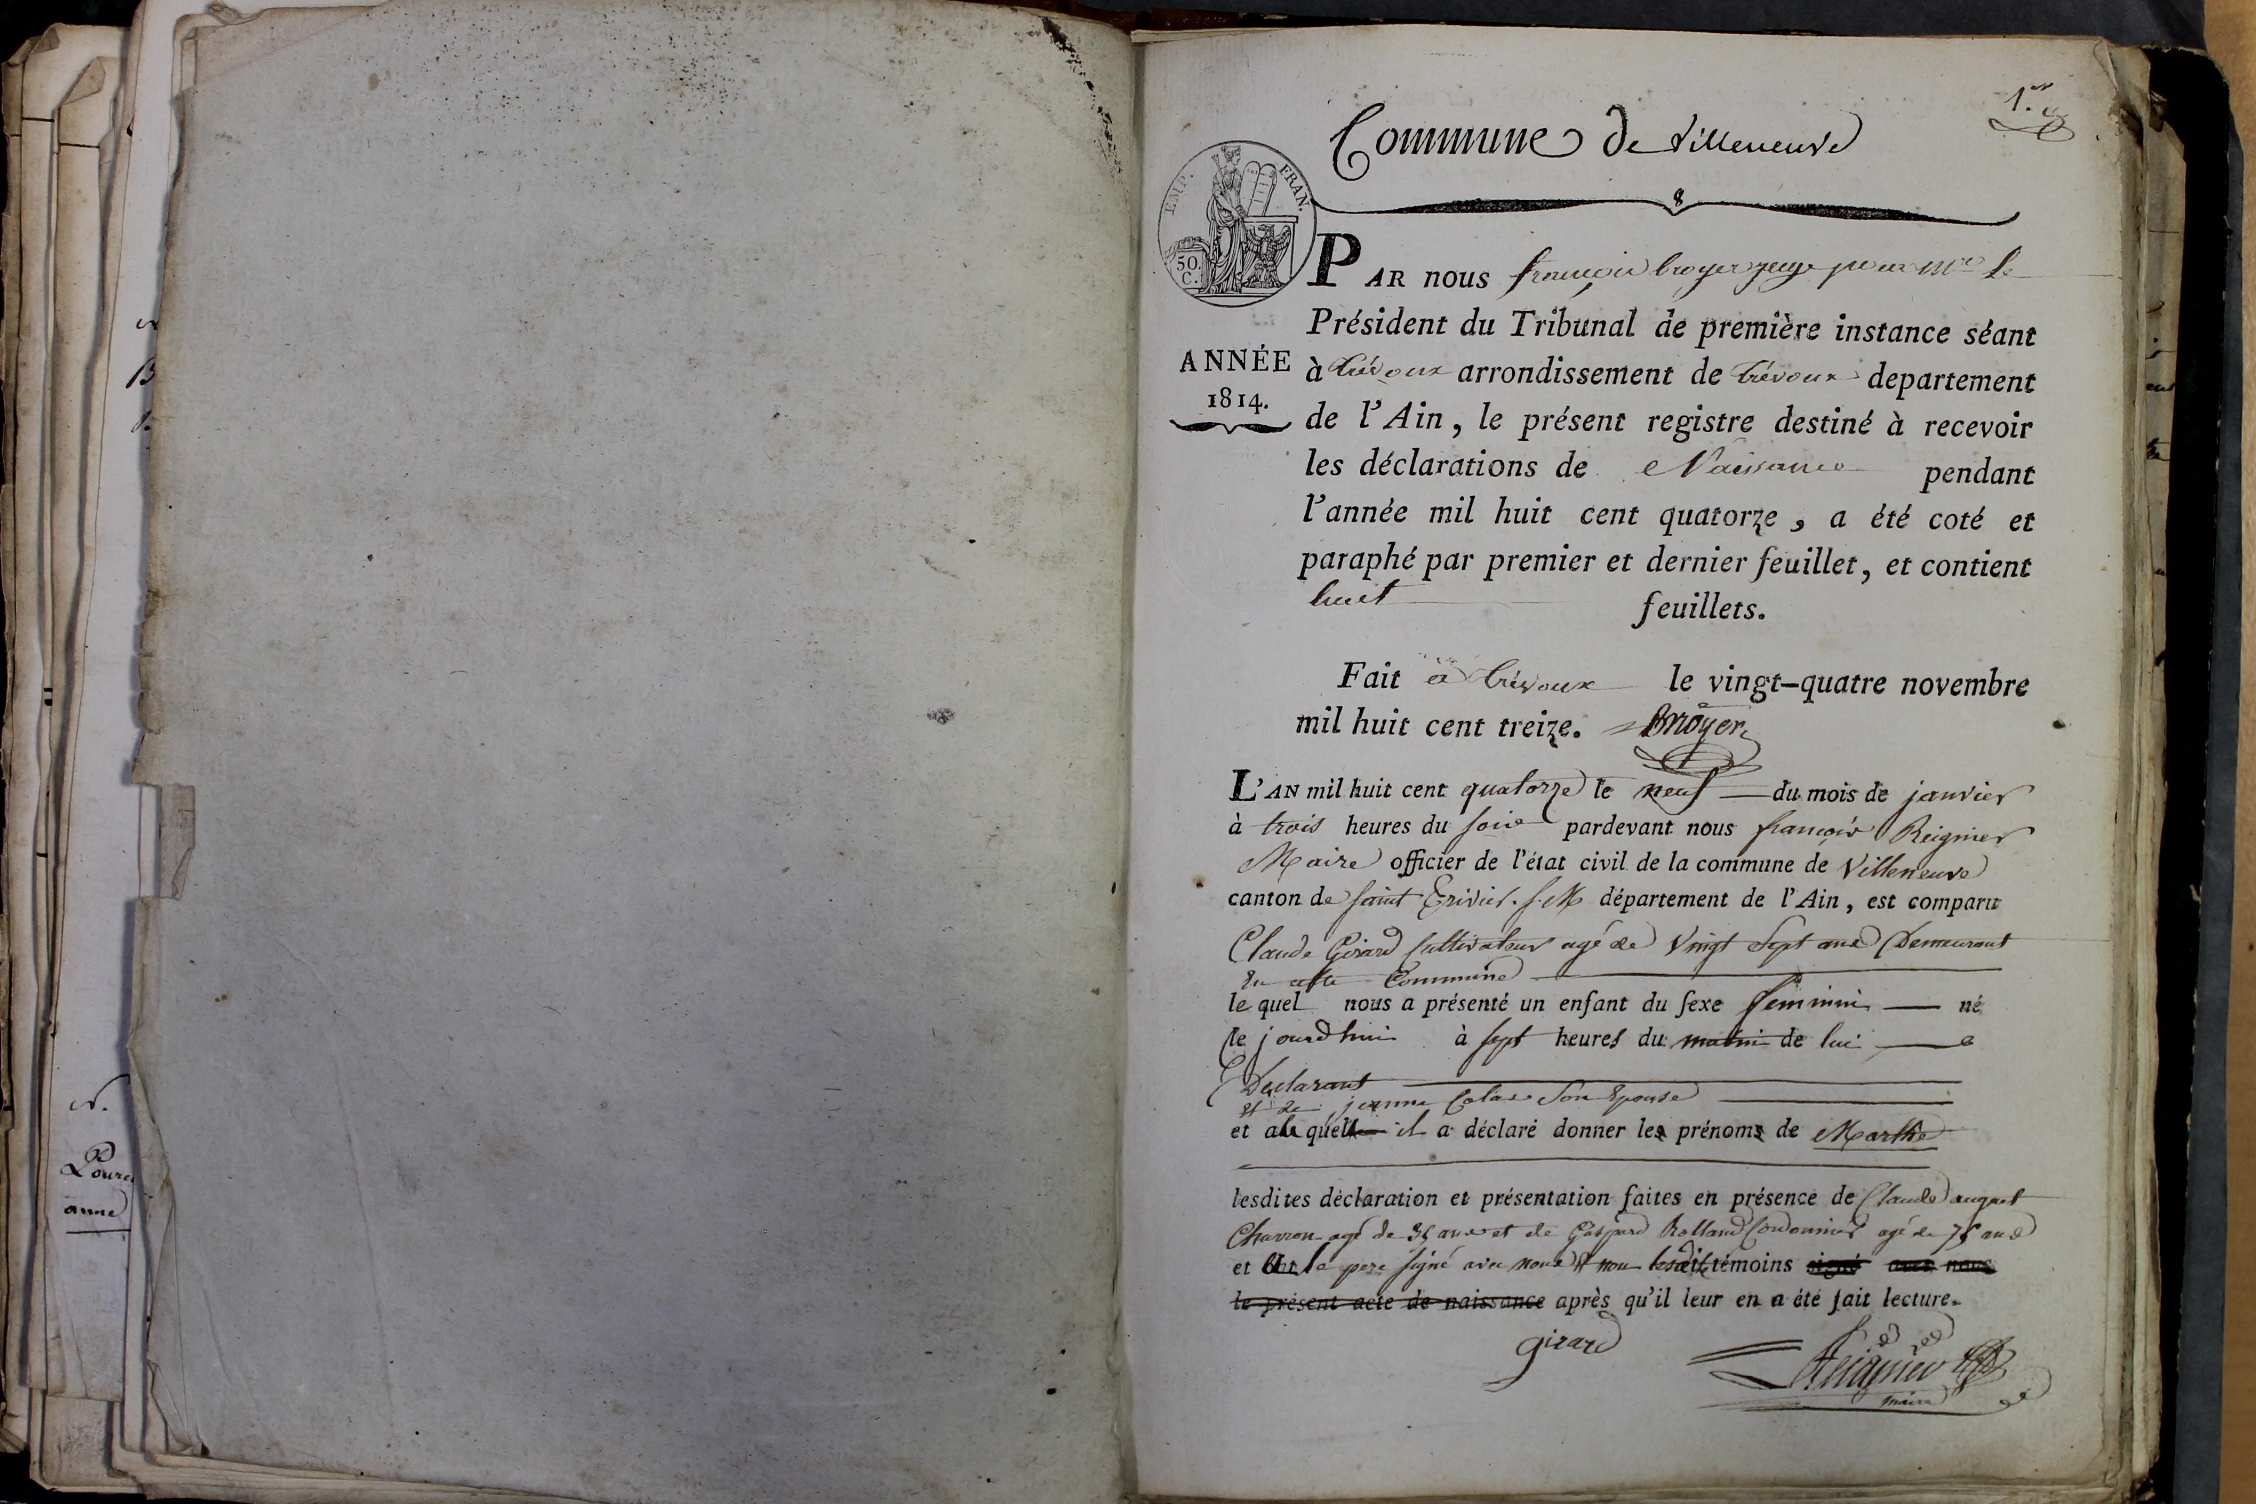 1.er
Commune de Villeneuve
8
EMP. FRAN.
50.
C.
PAR nous françois broyer juge pour Mr le
Président du Tribunal de première instance séant
ANNÉE
1814.
à trévoux arrondissement de trévoux departement
de l'Ain, le présent registre destiné à recevoir
les déclarations de Naissance pendant
l'année mil huit cent quatorze, a été coté et
paraphé par premier et dernier feuillet, et contient
huit feuillets.
Fait à trévoux le vingt-quatre novembre
mil huit cent treize. Broyer
L'AN mil huit cent quatorze le neuf du mois de janvier
à trois heures du soire pardevant nous françois Reignier
Maire officier de l'état civil de la commune de Villeneuve
canton de saint Trivier. s. M département de l'Ain, est comparu
Claude Girard Cultivateur agé de Vingt Sept ans Demeurant
en cette Commune
le quel nous a présenté un enfant du sexe feminin né
le jourdhui à sept heures du matin de lui
Declarant
et de jeanne Colas Son Epouse
et al quel il a déclaré donner les prénoms de Marthe
lesdites déclaration et présentation faites en présence de Claude
Charron agé de 35 ans et de Gaspard Rolland Cordonnier agé de 75 ans
et ont le pere signé avec nous et non lesdit témoins signé avec nous
le présent acte de naissance après qu'il leur en a été fait lecture.
girard
Reignier
maire
N.
anne